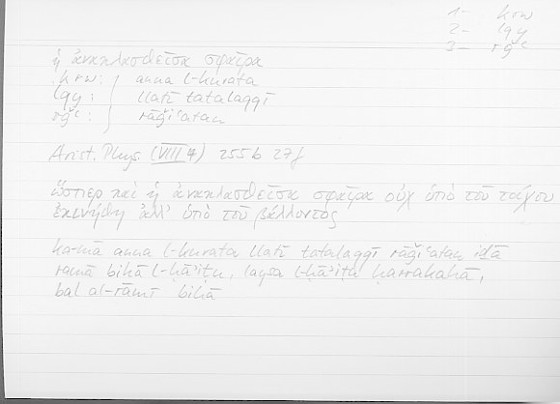 1– krw
2– lqy
3– rǧʿ
ἡ ἀνακλασθεῖσα σφαῖρα
krw: anna l-kurata
lqy: llatī tatalaqqī
rǧʿ: rāǧiʿatan
Arist. Phys. (VIII 4) 255b 27f
ὥσπερ καὶ ἡ ἀνακλασθεῖσα σφαῖρα οὐχ ὑπὸ τοῦ τοίχου
ἐκινήθη ἀλλ' ὑπὸ τοῦ βάλλοντος
ka-mā anna l-kurata llatī tatalaqqī rāǧiʿatan iḏā
ramā bihā l-ḥāʾiṭu, laysa l-ḥāʾiṭu ḥarrakahā,
bal al-rāmī bihā